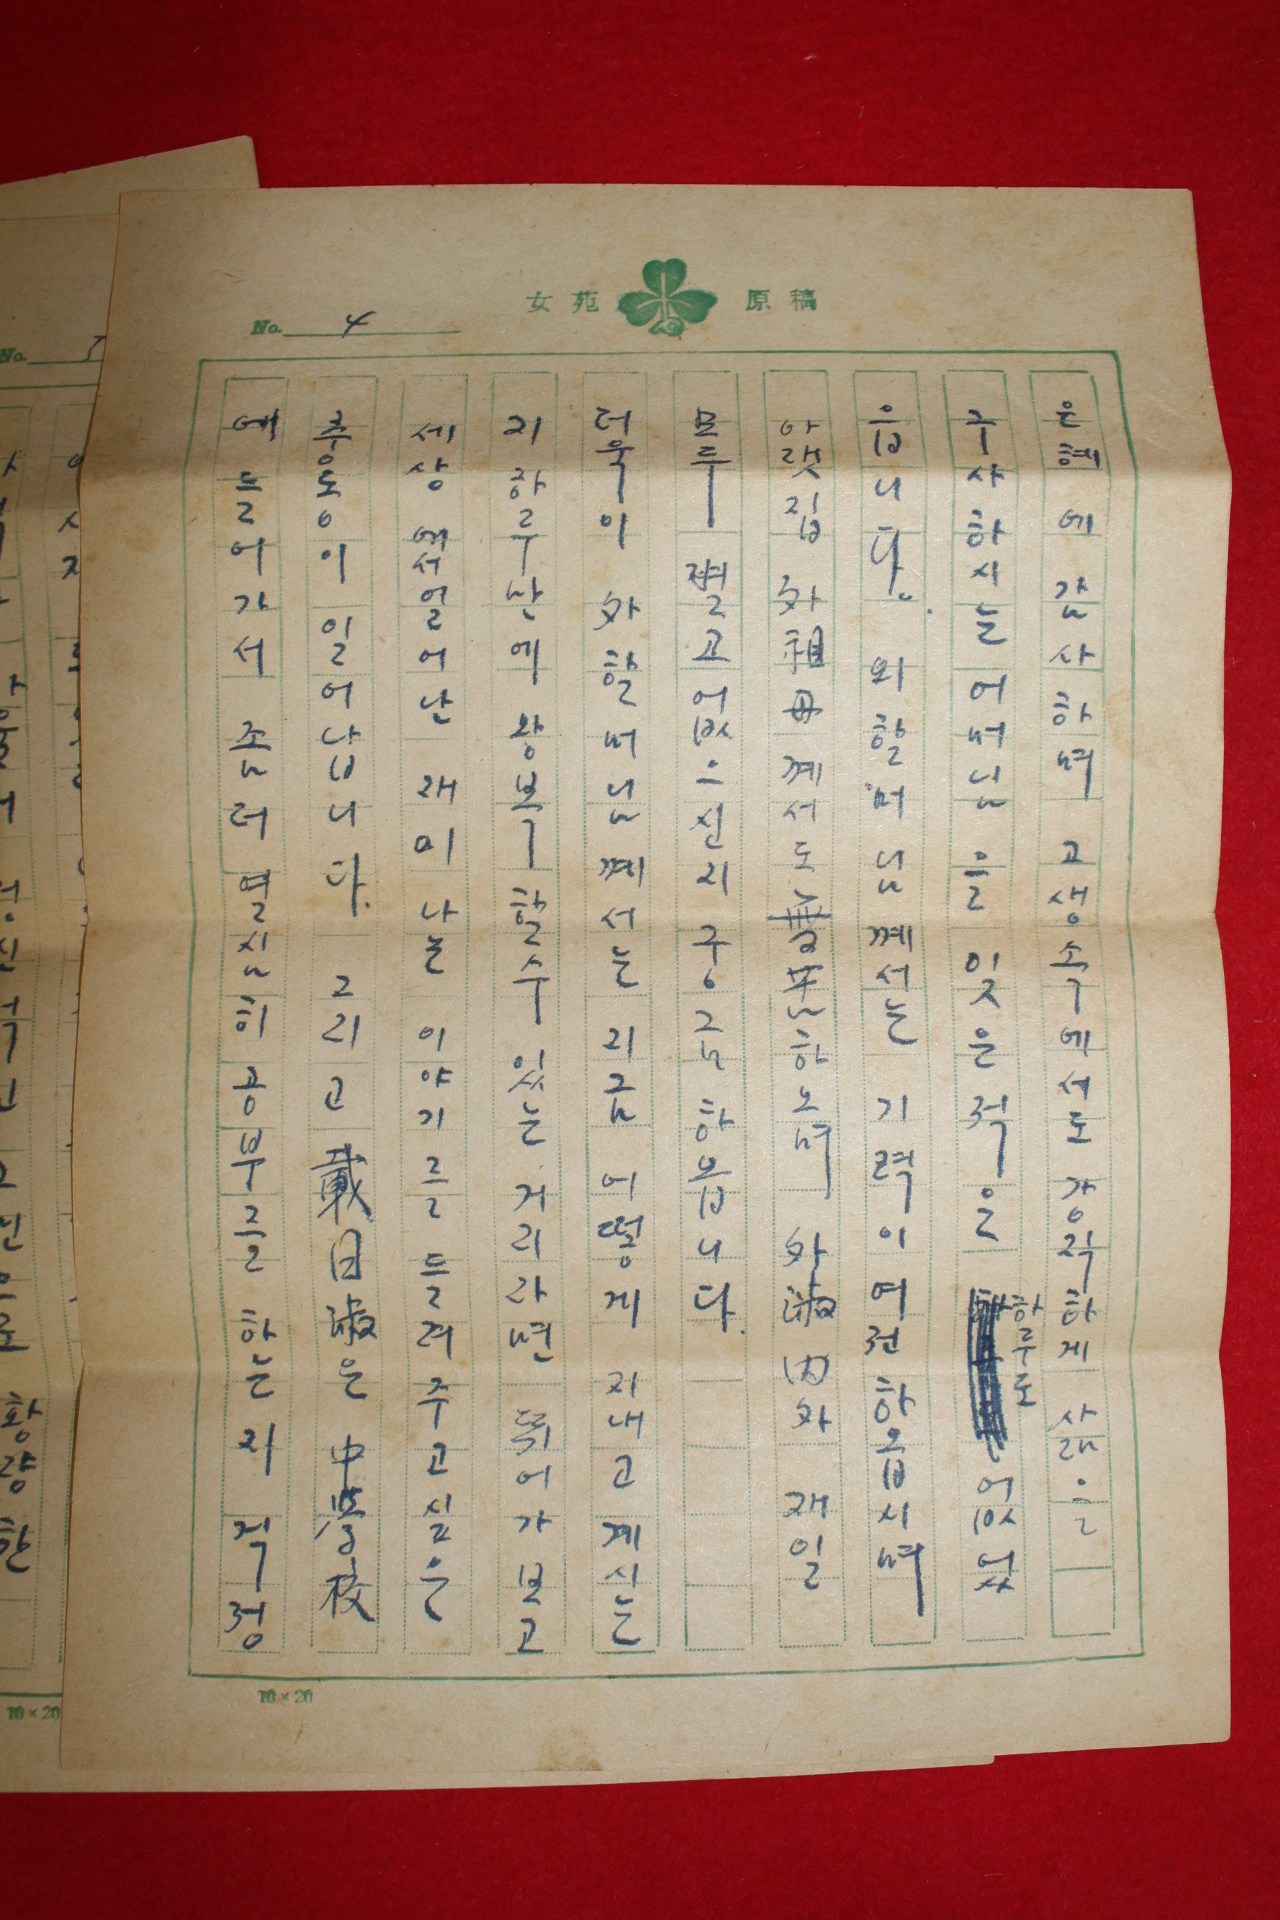 女苑 原稿
No. 4
은혜에 감사하며 고생속에서도 강직하게 삶을
구사하시는 어머님을 잊은적은 하루도 없었
읍니다. 외할머님께서는 기력이 여전하옵시며
아랫집 外祖母께서도 無恙하오며 外淑内外 재일
모두 별고없으신지 궁금하옵니다.
더욱이 外할머님께서는 지금 어떻게 지내고 계시는
지 하루만에 왕복할수 있는 거리라면 뛰어가보고
세상에서 일어난 재미나는 이야기를 들려주고싶은
충동이 일어납니다. 그리고 載日淑은 中學校
에 들어가서 좀더 열심히 공부를 하는지 걱정
10×20
No. 5
황량한
10×20